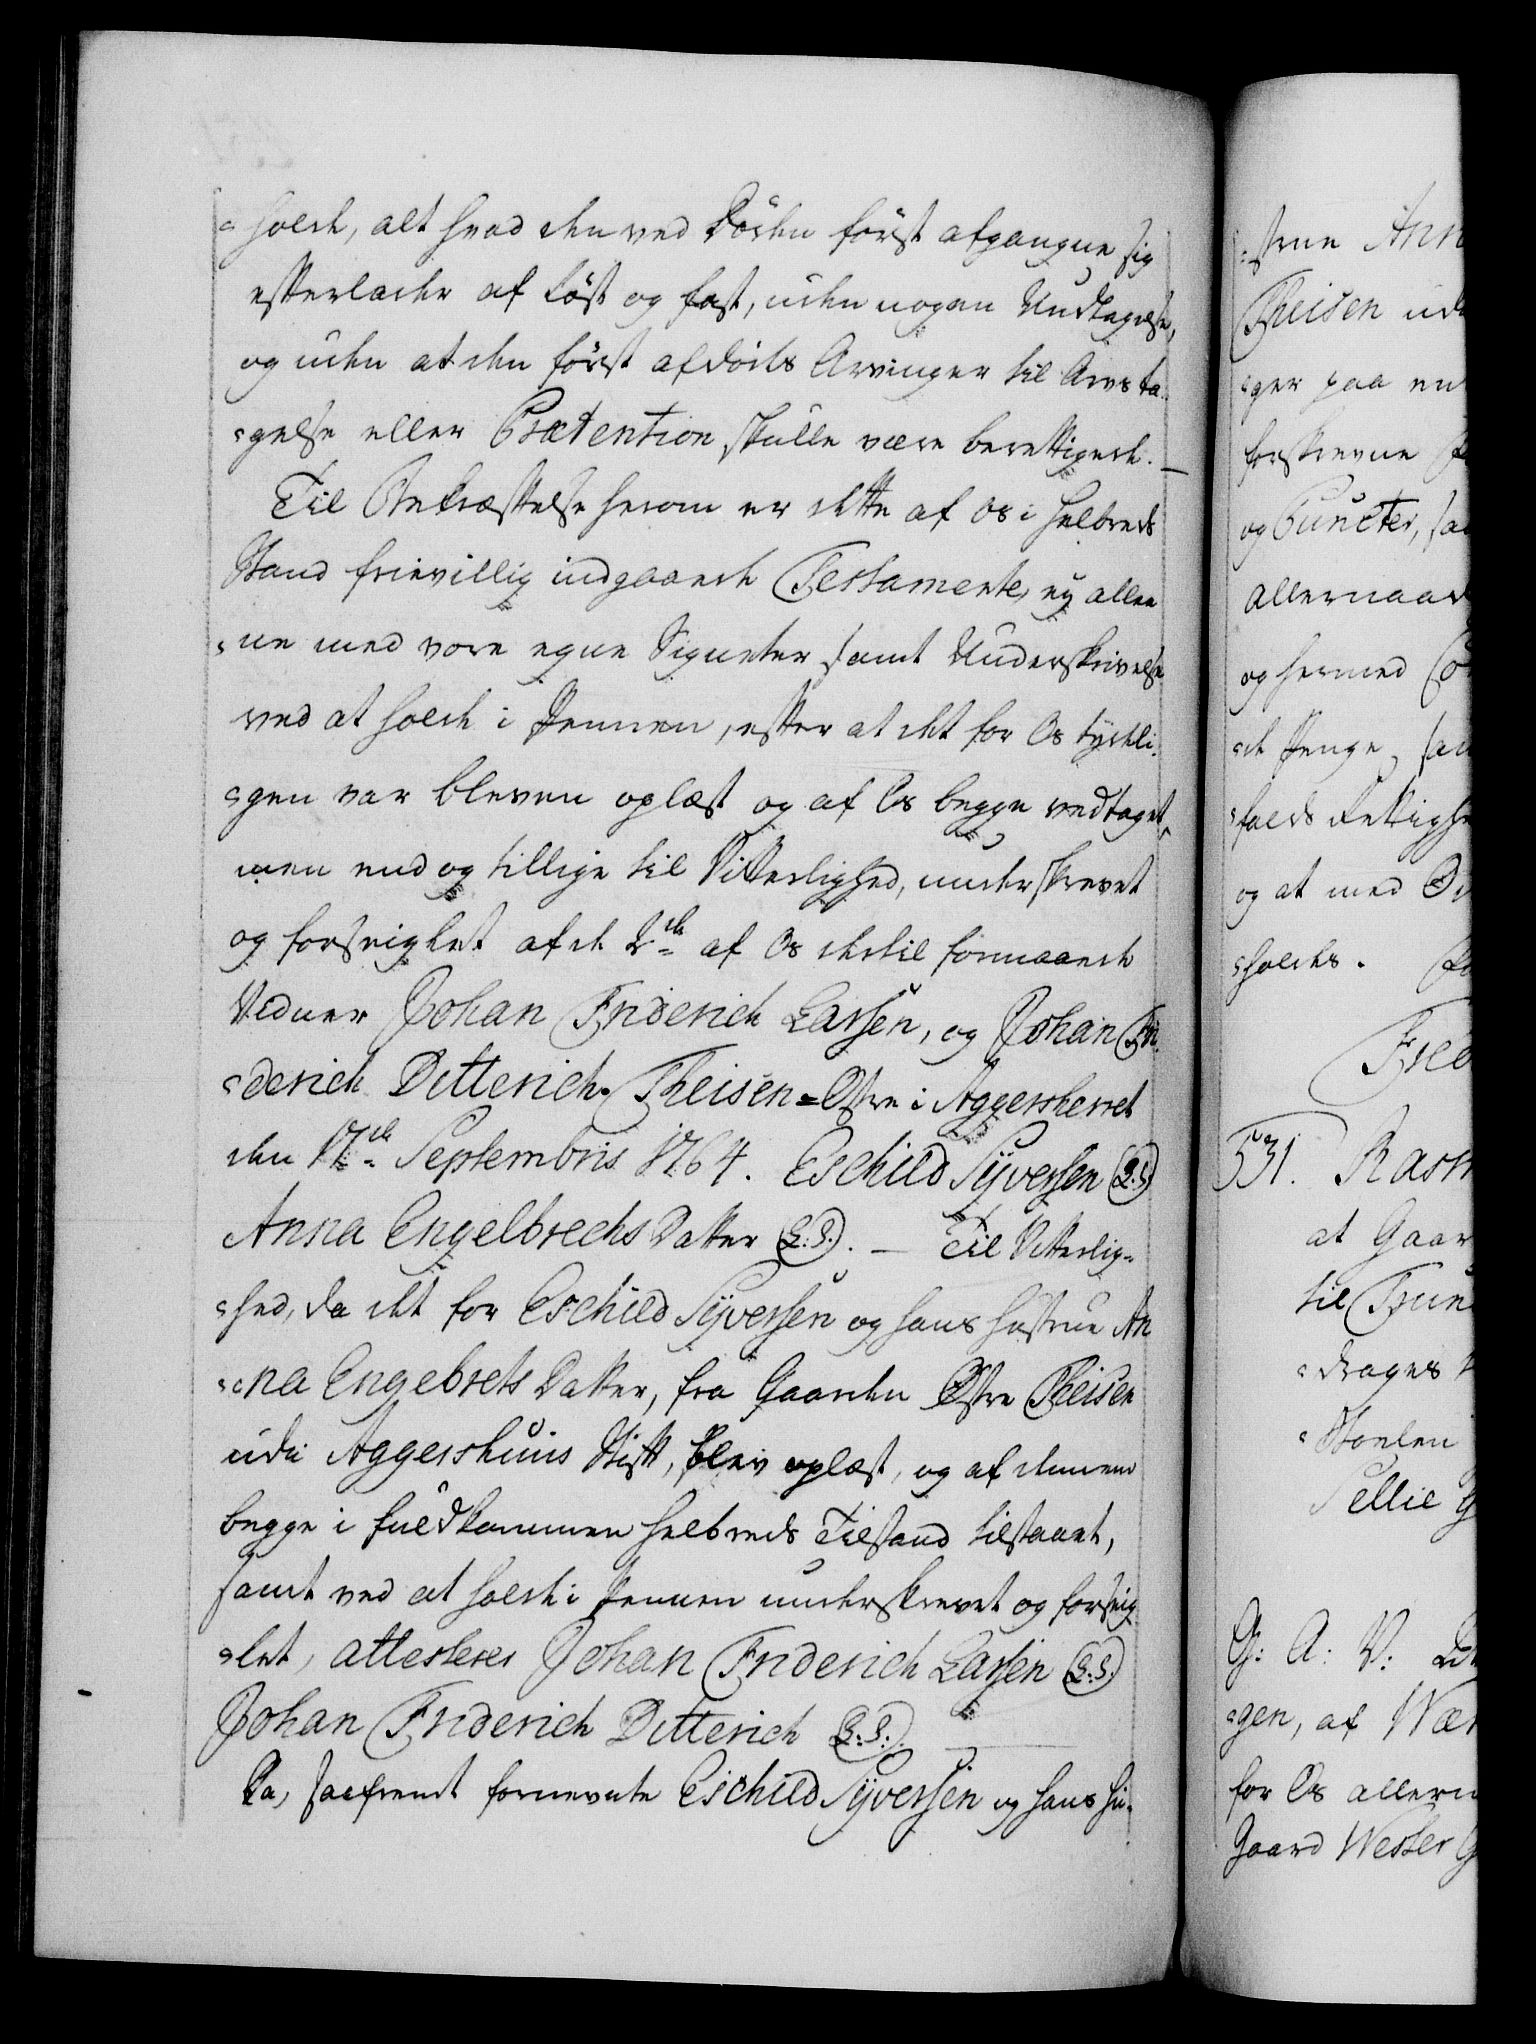 =holde, alt hvad den ved Döden först afgangne sig
efterlader af löst og fast, uden nogen Undtagelse,
og uden at den först afdöds Arvinger til Arvs ta
=gelse eller Prætention skulle være berettigede. —
Til Bekræftelse herom er dette af os i Helbreds
Stand frievillig indgaaede Testamente, ey allee
=ne med vore egne Signeter samt Underskrivelse
ved at holde i Pennen, efter at det for Os tydeli
=gen var bleven oplæst og af Os begge vedtaget,
men end og tillige til Vitterlighed, underskrevet
og forseiglet af de 2de af Os dertil formaaede
Vidner Johan Friderich Larsen, og Johan Fri
=derich Ditterich. Theisen=Østre i Aggersherret
den 17de Septembris 1764. Eschild Syversen (L.S.)
Anna Engelbrechs Datter (L.S.). — Til Vitterlig=
=hed, da det for Eschild Syversen og hans Hustrue An
=na Engebrets Datter, fra Gaarden Østre Theisen
udi Aggershuus Stift, blev oplæst, og af dennem
begge i fuldkommen Helbreds Tilstand tilstaaet,
samt ved at holde i Pennen underskrevet og forseig
=let, attesterer Johan Friderich Larsen (L.S.)
Johan Friderich Ditterich (L.S.)
Da, saafremt fornevnte Eschild Syversen og hans Hu=
=strue Ann
Theisen ud
=ger paa en
forskrevne
og Puncter, saa
allernaad
og hermed Co
=de Penge, saa
=falds Rettighe
og at med
=holdes.
Fred
531. Rasm
at Gaar
til Trun
=drages
=Stolen
Tellie G
G: A: V:
=gen, af Wær
for Os allern
Gaard Wester G